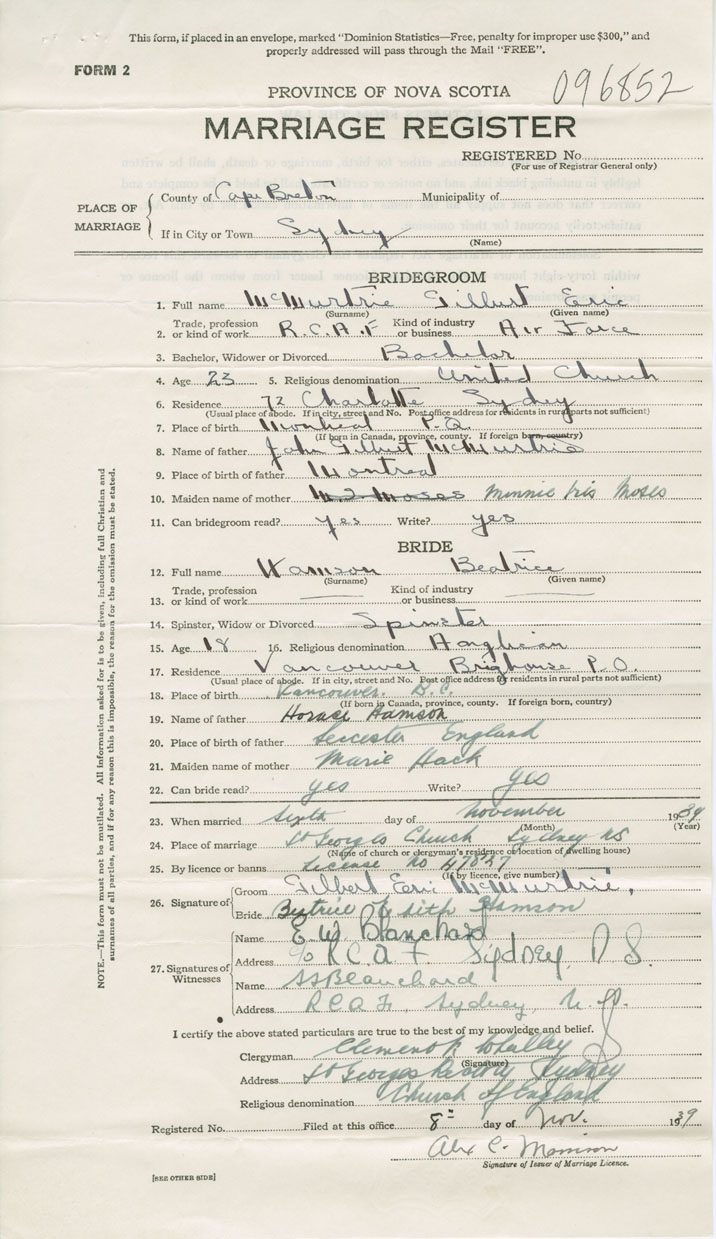 This form, if placed in an envelope, marked "Dominion Statistics—Free, penalty for improper use $300," and
properly addressed will pass through the Mail "FREE".
FORM 2
096852
PROVINCE OF NOVA SCOTIA
MARRIAGE REGISTER
REGISTERED No.
(For use of Registrar General only)
PLACE OF MARRIAGE
County of Cape Breton Municipality of
If in City or Town Sydney
(Name)
BRIDEGROOM
1. Full name McMurtrie Gilbert Eric
(Surname) (Given name)
2. Trade, profession or kind of work R.C.A.F Kind of industry or business Air Force
3. Bachelor, Widower or Divorced Bachelor
4. Age 23 5. Religious denomination United Church
6. Residence 72 Charlotte Sydney
(Usual place of abode. If in city, street and No. Post office address for residents in rural parts not sufficient)
7. Place of birth Montreal P.Q.
(If born in Canada, province, county. If foreign born, country)
8. Name of father John Gilbert McMurtrie
9. Place of birth of father Montreal
10. Maiden name of mother Moses Minnie Iris Moses
11. Can bridegroom read? yes Write? yes
BRIDE
12. Full name Hamson Beatrice
(Surname) (Given name)
13. Trade, profession or kind of work Kind of industry or business
14. Spinster, Widow or Divorced Spinster
15. Age 18 16. Religious denomination Anglican
17. Residence Vancouver Brighouse P.O.
(Usual place of abode. If in city, street and No. Post office address for residents in rural parts not sufficient)
18. Place of birth Vancouver. B.C.
(If born in Canada, province, county. If foreign born, country)
19. Name of father Horace Hamson
20. Place of birth of father Leicester England
21. Maiden name of mother Marie Hack
22. Can bride read? yes Write? yes
23. When married Sixth day of November 1939
(Month) (Year)
24. Place of marriage St Georges Church Sydney NS
(Name of church or clergyman's residence or location of dwelling house)
25. By licence or banns License No 47827
(If by licence, give number)
26. Signature of
Groom Gilbert Eric McMurtrie,
Bride Beatrice Edith Hamson
27. Signatures of Witnesses
Name E. W. Blanchard
Address c/o R.C.A.F Sydney, N S.
Name Blanchard
Address R.C.A.F., Sydney, N.S.
I certify the above stated particulars are true to the best of my knowledge and belief.
Clergyman Whalley
(Signature)
Address St Georges Rectory Sydney
Religious denomination Church of England
Registered No. Filed at this office 8" day of Nov. 1939
Alex C. Morrison
Signature of Issuer of Marriage Licence.
[SEE OTHER SIDE]
NOTE.—This form must not be mutilated. All information asked for is to be given, including full Christian and
surnames of all parties, and if for any reason this is impossible, the reason for the omission must be stated.